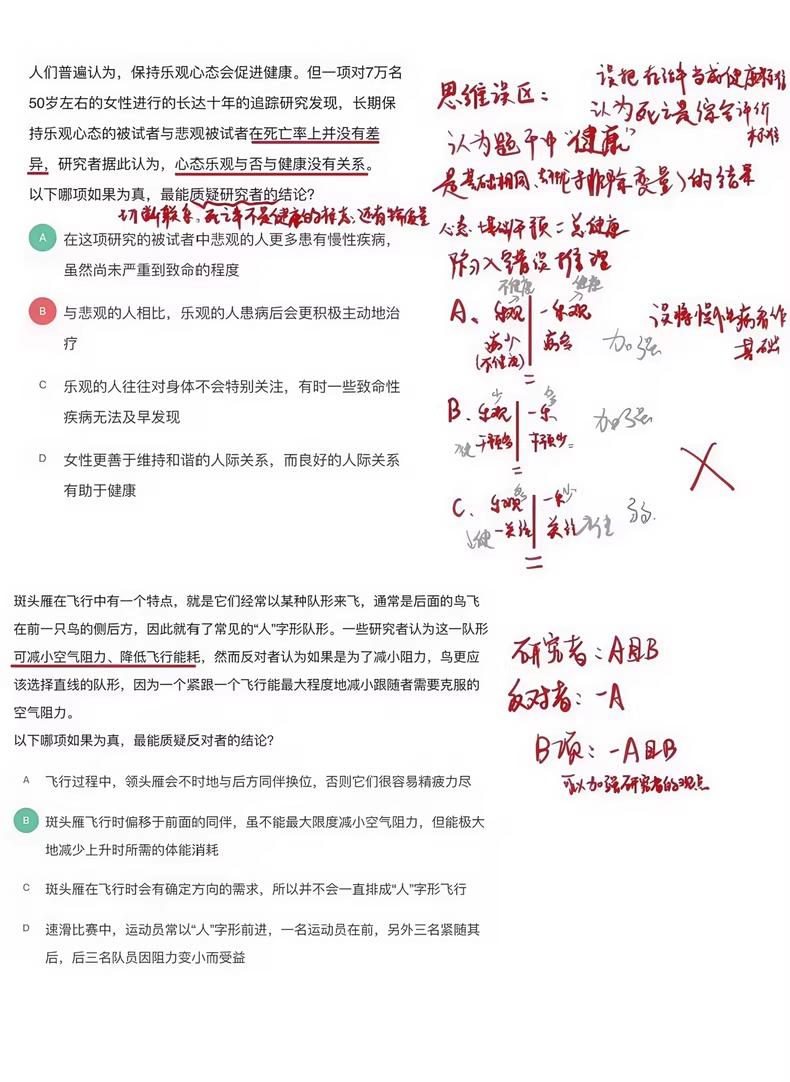 人们普遍认为，保持乐观心态会促进健康。但一项对7万名
50岁左右的女性进行的长达十年的追踪研究发现，长期保
持乐观心态的被试者与悲观被试者在死亡率上并没有差
异，研究者据此认为，心态乐观与否与健康没有关系。
以下哪项如果为真，最能质疑研究者的结论？
切断联系，死亡率不是健康的标志，还有
A 在这项研究的被试者中悲观的人更多患有慢性疾病，
虽然尚未严重到致命的程度
B 与悲观的人相比，乐观的人患病后会更积极主动地治
疗
C 乐观的人往往对身体不会特别关注，有时一些致命性
疾病无法及早发现
D 女性更善于维持和谐的人际关系，而良好的人际关系
有助于健康
思维误区：
误把 当成健康标准
认为死亡是综合评价
标准
认为题干中“健康”
是基础相同、 排除变量）的结果
心态 + 基础干预 = 总健康
陷入错误推理
不健康 健康
A、乐观 一乐观
病少 病多
(不健康)
加强
=
误将慢性病看作
基础
B、乐观 一乐
少 多
干预多 干预少
加强
=
C、乐观 一乐
多 少
一关注 关注
弱
=
斑头雁在飞行中有一个特点，就是它们经常以某种队形来飞，通常是后面的鸟飞
在前一只鸟的侧后方，因此就有了常见的“人”字形队形。一些研究者认为这一队形
可减小空气阻力、降低飞行能耗，然而反对者认为如果是为了减小阻力，鸟更应
该选择直线的队形，因为一个紧跟一个飞行能最大程度地减小跟随者需要克服的
空气阻力。
以下哪项如果为真，最能质疑反对者的结论？
A 飞行过程中，领头雁会不时地与后方同伴换位，否则它们很容易精疲力尽
B 斑头雁飞行时偏移于前面的同伴，虽不能最大限度减小空气阻力，但能极大
地减少上升时所需的体能消耗
C 斑头雁在飞行时会有确定方向的需求，所以并不会一直排成“人”字形飞行
D 速滑比赛中，运动员常以“人”字形前进，一名运动员在前，另外三名紧随其
后，后三名队员因阻力变小而受益
研究者：A且B
反对者：-A
B项：-A且B
可以加强研究者的观点